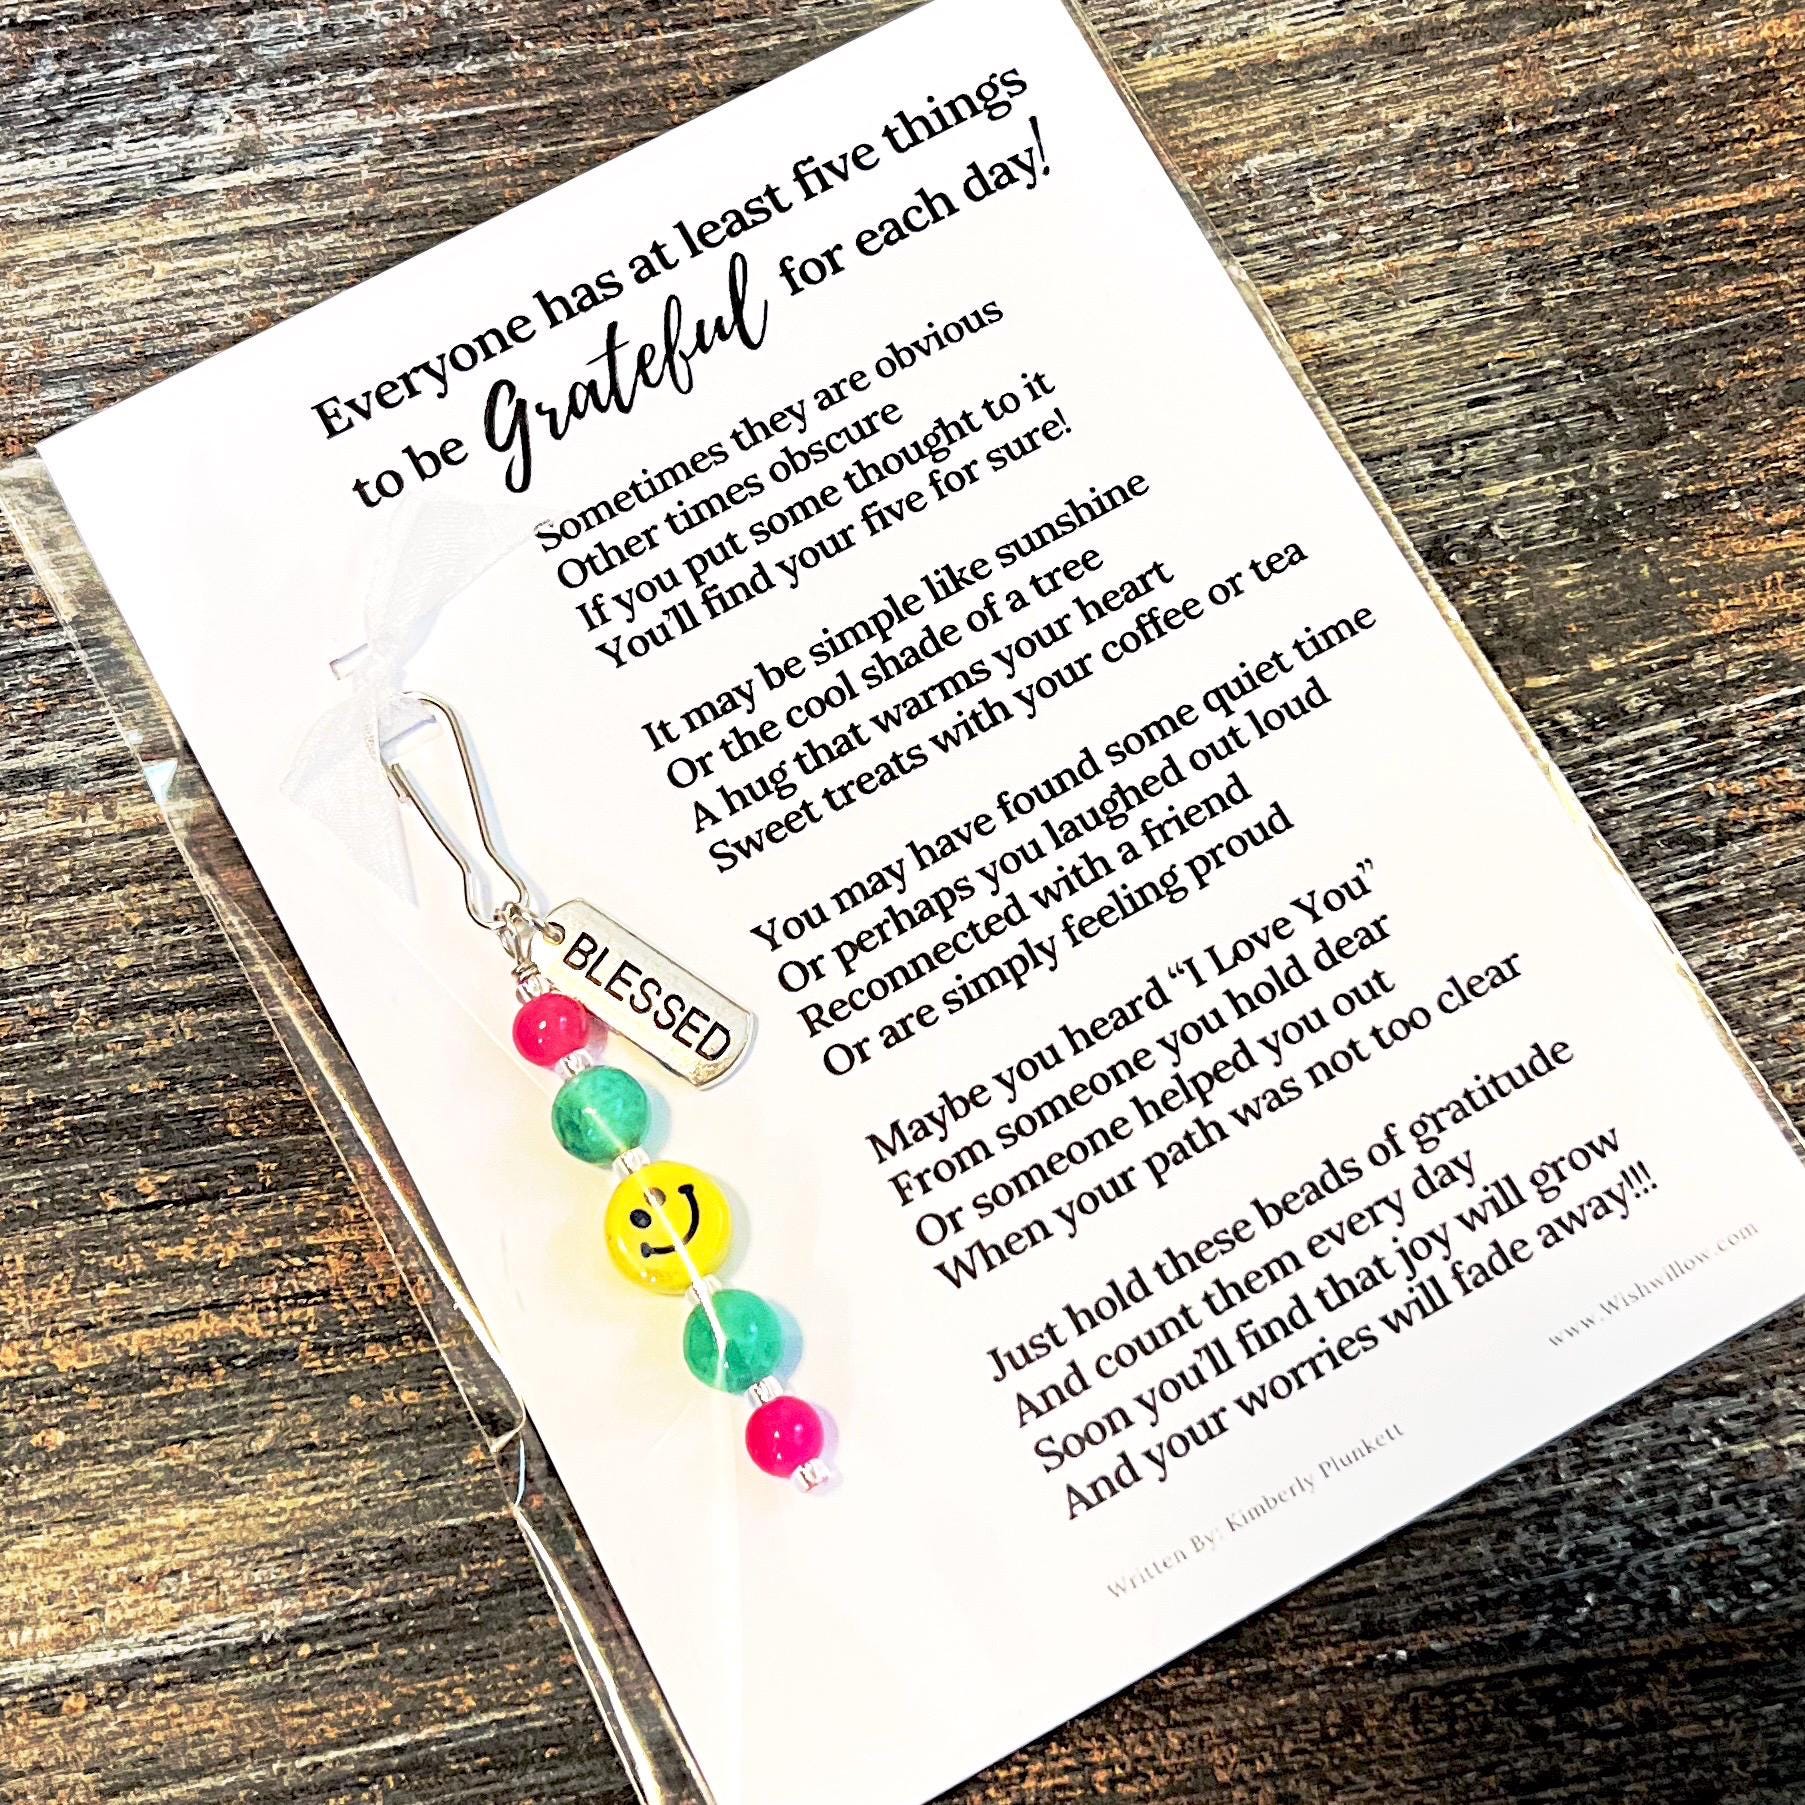 Everyone has at least five things
to be Grateful for each day!
Sometimes they are obvious
Other times obscure
If you put some thought to it
You'll find your five for sure!
It may be simple like sunshine
Or the cool shade of a tree
A hug that warms your heart
Sweet treats with your coffee or tea
You may have found some quiet time
Or perhaps you laughed out loud
Reconnected with a friend
Or are simply feeling proud
Maybe you heard “I Love You”
From someone you hold dear
Or someone helped you out
When your path was not too clear
Just hold these beads of gratitude
And count them every day
Soon you'll find that joy will grow
And your worries will fade away!!!
Written By: Kimberly Plunkett
www.Wishwillow.com
BLESSED